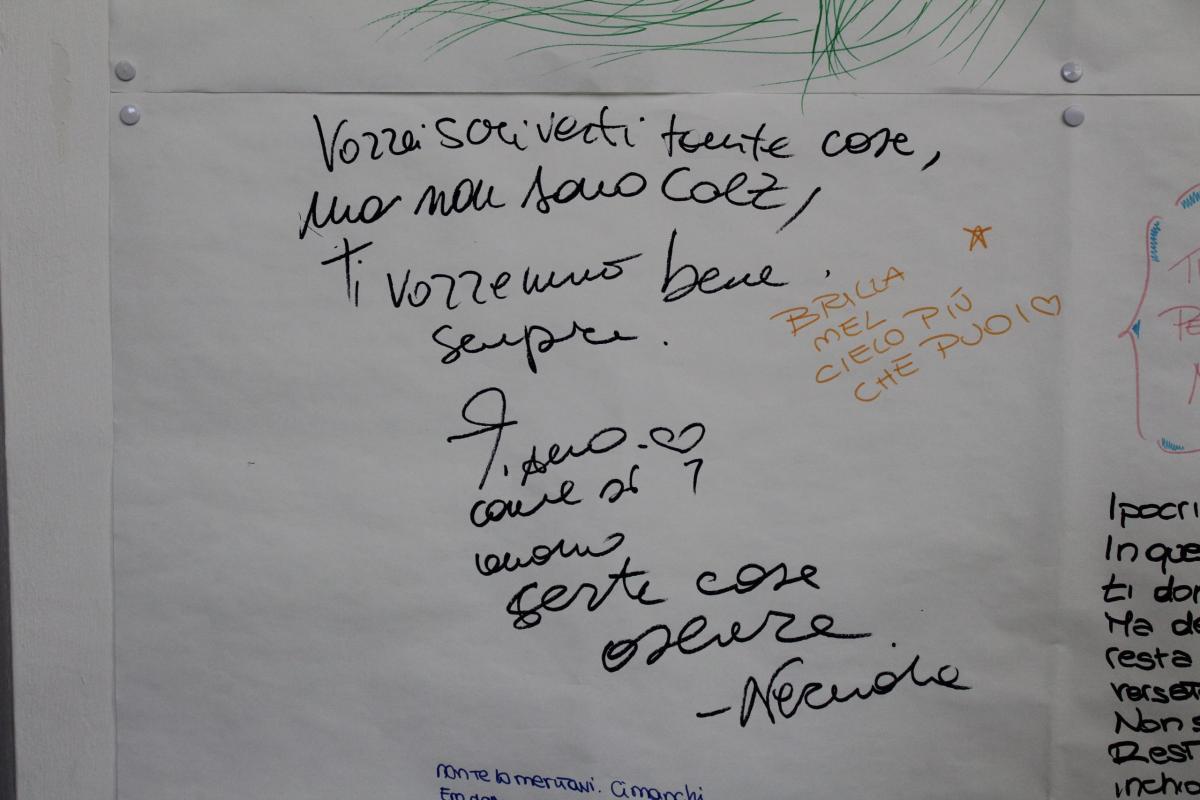 Vorrei scriverti tante cose,
ma non sono Colz,
ti vorremmo bene
sempre.
BRILLA
NEL
CIELO PIÚ
CHE PUOI ♡
T. amo. ♡
come si
amano
certe cose
oscure.
- Neruda
TI
PE
Ipocri
In que
ti don
Ma de
resta
verset
Non s
Rest
inchio
non te lo meritavi. Ci manchi